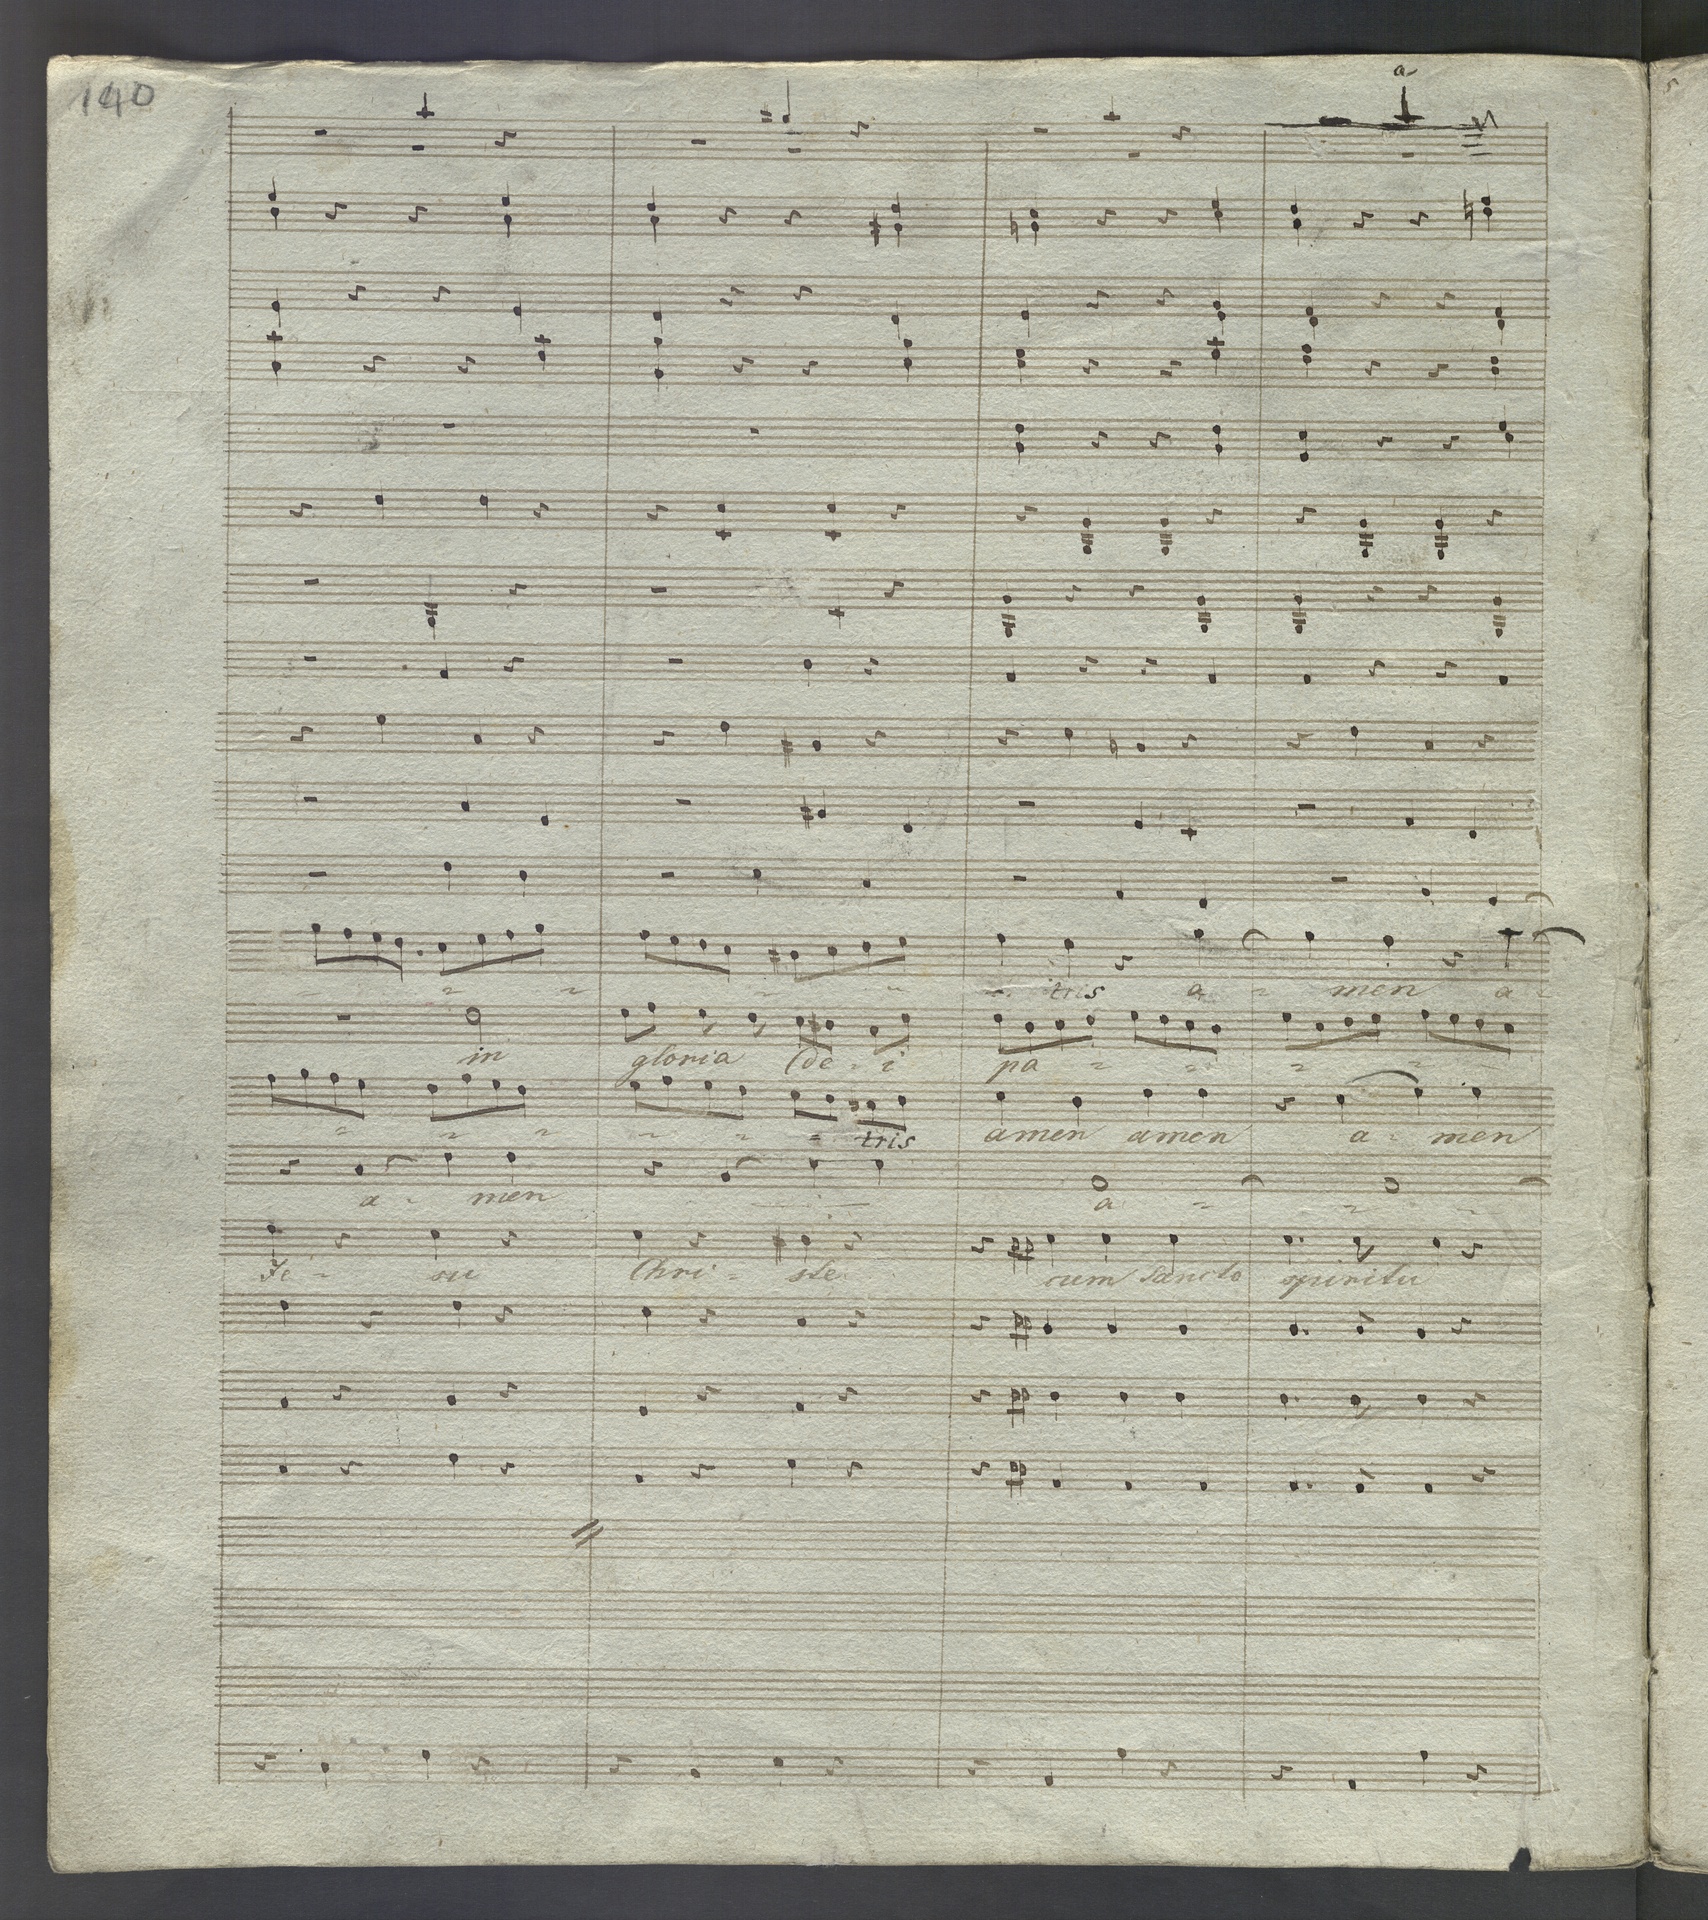 140
a
tris a - men a -
in gloria Dei pa - - - - -
- - - - - - tris amen amen a - men
a - men a - - -
Je - su Chri - ste cum Sancto spiritu